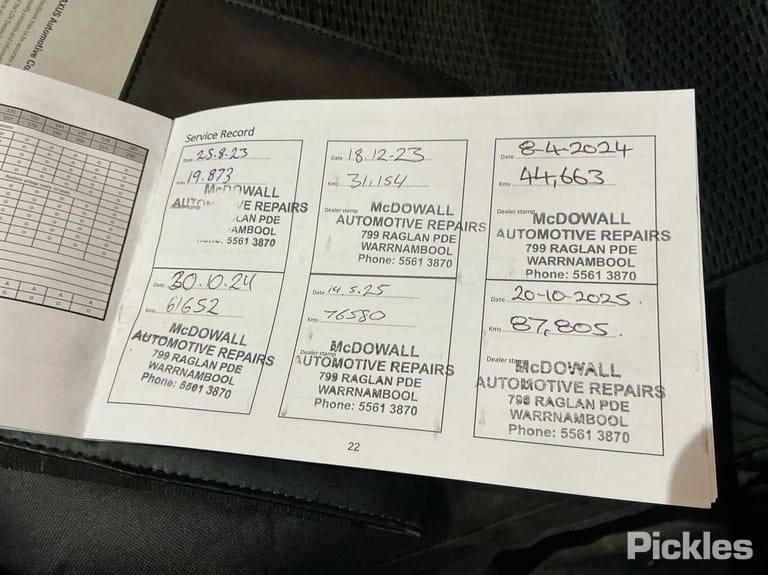 AXUS Automotive
Service Record
Date 25.8.23
Kms 19.873
McDOWALL
Dealer stamp
AUTOM VE REPAIRS
LAN PDE
AMBOOL
5561 3870
Date 18.12-23
Kms 31,154
Dealer stamp
McDOWALL
AUTOMOTIVE REPAIRS
799 RAGLAN PDE
WARRNAMBOOL
Phone: 5561 3870
Date 8-4-2024
Kms 44,663
Dealer stamp
McDOWALL
AUTOMOTIVE REPAIRS
799 RAGLAN PDE
WARRNAMBOOL
Phone: 5561 3870
Date 30.10.24
Kms 61652
McDOWALL
AUTOMOTIVE REPAIRS
799 RAGLAN PDE
WARRNAMBOOL
Phone: 5561 3870
Date 14.5.25
Kms 76580
Dealer stamp
McDOWALL
AUTOMOTIVE REPAIRS
799 RAGLAN PDE
WARRNAMBOOL
Phone: 5561 3870
Date 20-10-2025.
Kms 87,805.
Dealer stamp
McDOWALL
AUTOMOTIVE REPAIRS
799 RAGLAN PDE
WARRNAMBOOL
Phone: 5561 3870
22
Pickles